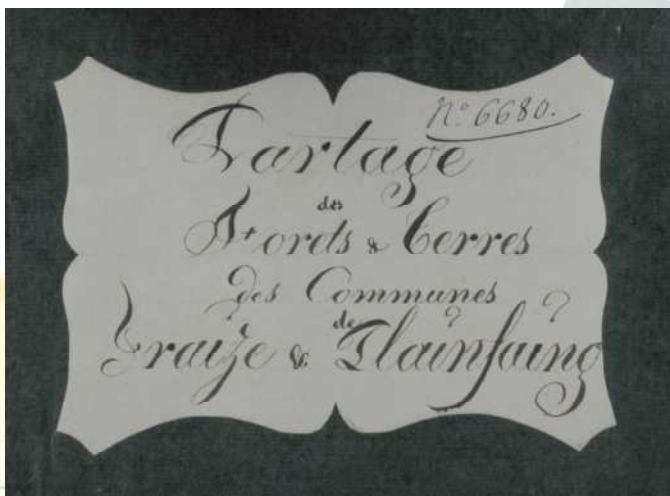 N° 6680.
Partage
des
Forets & Terres
des Communes
de
Fraize & Plainfaing